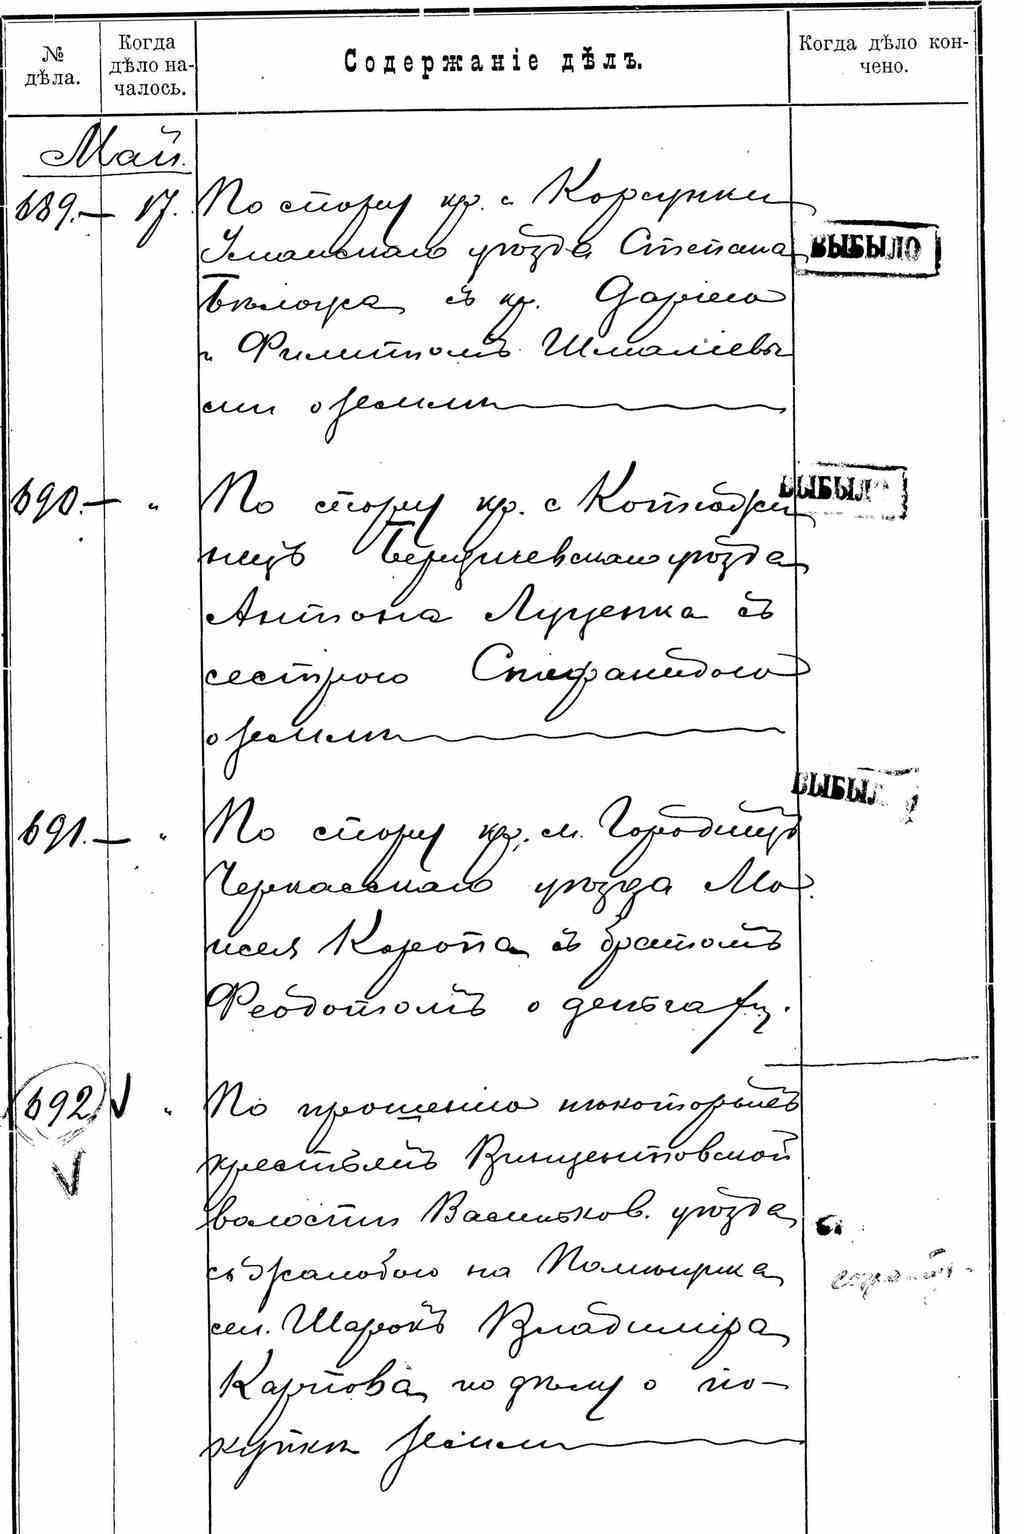 № дѣла.
Когда дѣло на-
чалось.
Содержаніе дѣлъ.
Когда дѣло кон-
чено.
Май.
689.— 17. По спору кр. с Корсунки
Уманскаго уѣзда Степана
Бѣлоуса съ кр. Даріею
и Филиппомъ Шмаліевы
ми о землѣ
ВЫБЫЛО
690.— " По спору кр. с Котюжи
нецъ Бердичевскаго уѣзда
Антона Луценка съ
сестрою Стефанидою
о землѣ
ВЫБЫЛО
691.— " По спору кр. м. Городищъ
Черкасскаго уѣзда Мо
исея Коропа съ братомъ
Феодотомъ о деньгахъ.
ВЫБЫЛО
692 V " По прошенію нѣкоторыхъ
крестьянъ Винцентовской
волости Васильков. уѣзда
съ жалобою на Помѣщика
сел. Шарокъ Владиміра
Карпова по дѣлу о по-
купкѣ земли
V